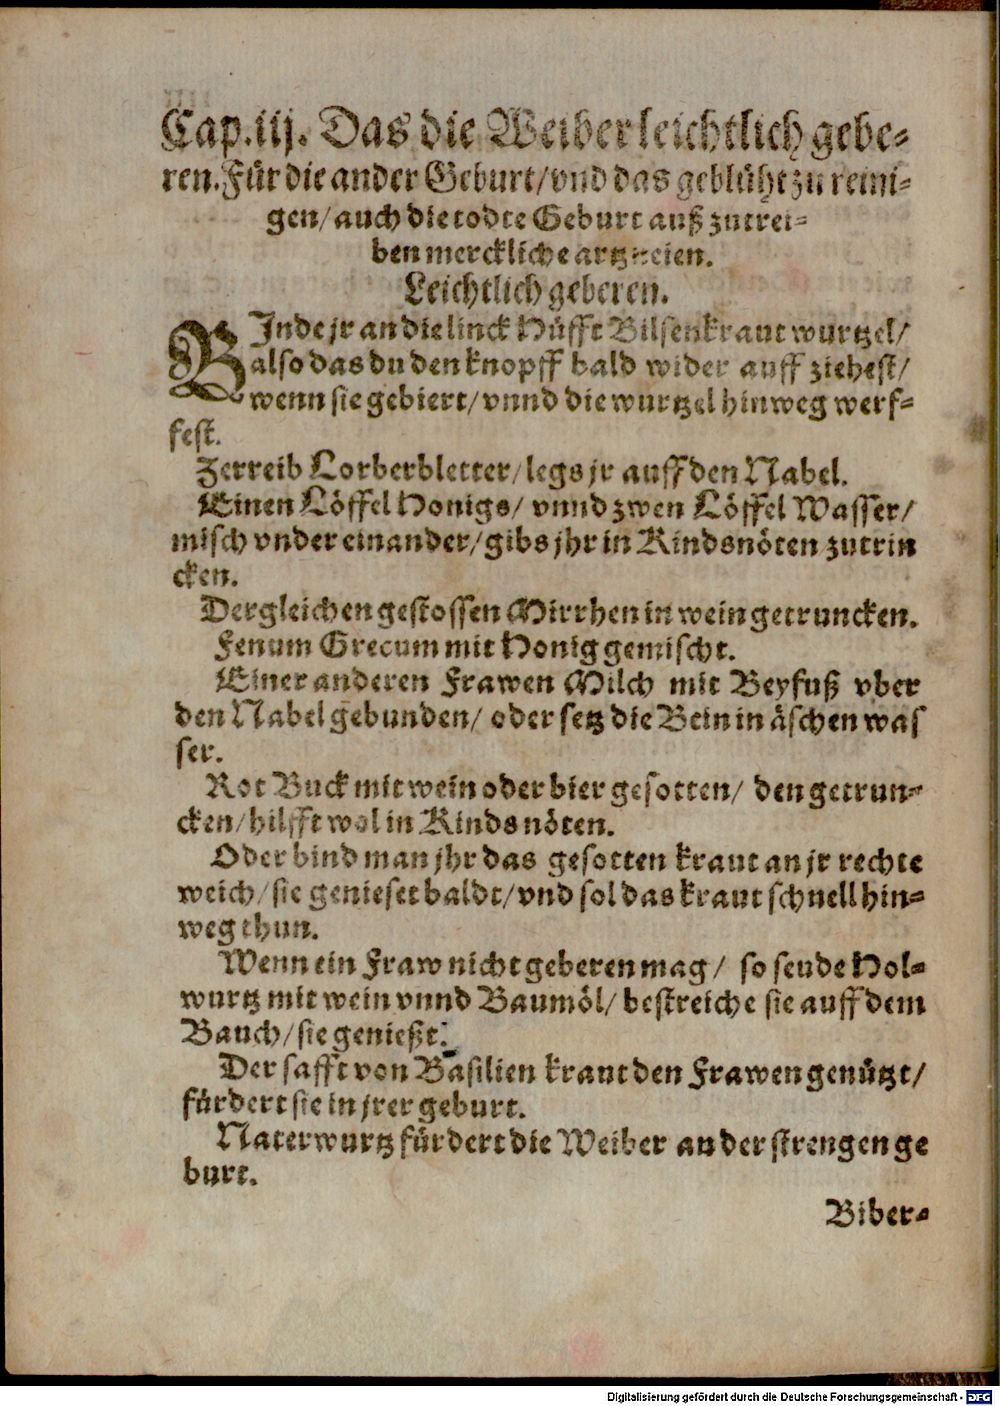 Cap.iij. Das die Weiber leichtlich gebe-
ren. Für die ander Geburt/vnd das geblüht zu reini-
gen/auch die todte Geburt auß zutrei-
ben merckliche artzneien.
Leichtlich geberen.
BInde jr an die linck Hüfft Bilsenkraut wurtzel/
also das du den knopff bald wider auff ziehest/
wenn sie gebiert/vnnd die wurtzel hinweg werf-
fest.
Zerreib Lorberbletter/legs jr auff den Nabel.
Einen Löffel Honigs/ vnnd zwen Löffel Wasser/
misch vnder einander/gibs jhr in Kindsnöten zutrin
cken.
Dergleichen gestossen Mirrhen in wein getruncken.
Fenum Grecum mit Honig gemischt.
Einer anderen Frawen Milch mit Beyfuß vber
den Nabel gebunden/ oder setz die Bein in äschen was
ser.
Rot Buck mit wein oder bier gesotten/ den getrun-
cken/hilfft wol in Kindsnöten.
Oder bind man jhr das gesotten kraut an jr rechte
weich/sie genieset baldt/vnd sol das kraut schnell hin-
weg thun.
Wenn ein Fraw nicht geberen mag/ so seude Hol-
wurtz mit wein vnnd Baumöl/ bestreiche sie auff dem
Bauch/sie genießt.
Der safft von Basilien kraut den Frawen genützt/
fürdert sie in jrer geburt.
Naterwurtz fürdert die Weiber an der strengen ge
burt.
Biber-
Digitalisierung gefördert durch die Deutsche Forschungsgemeinschaft - DFG